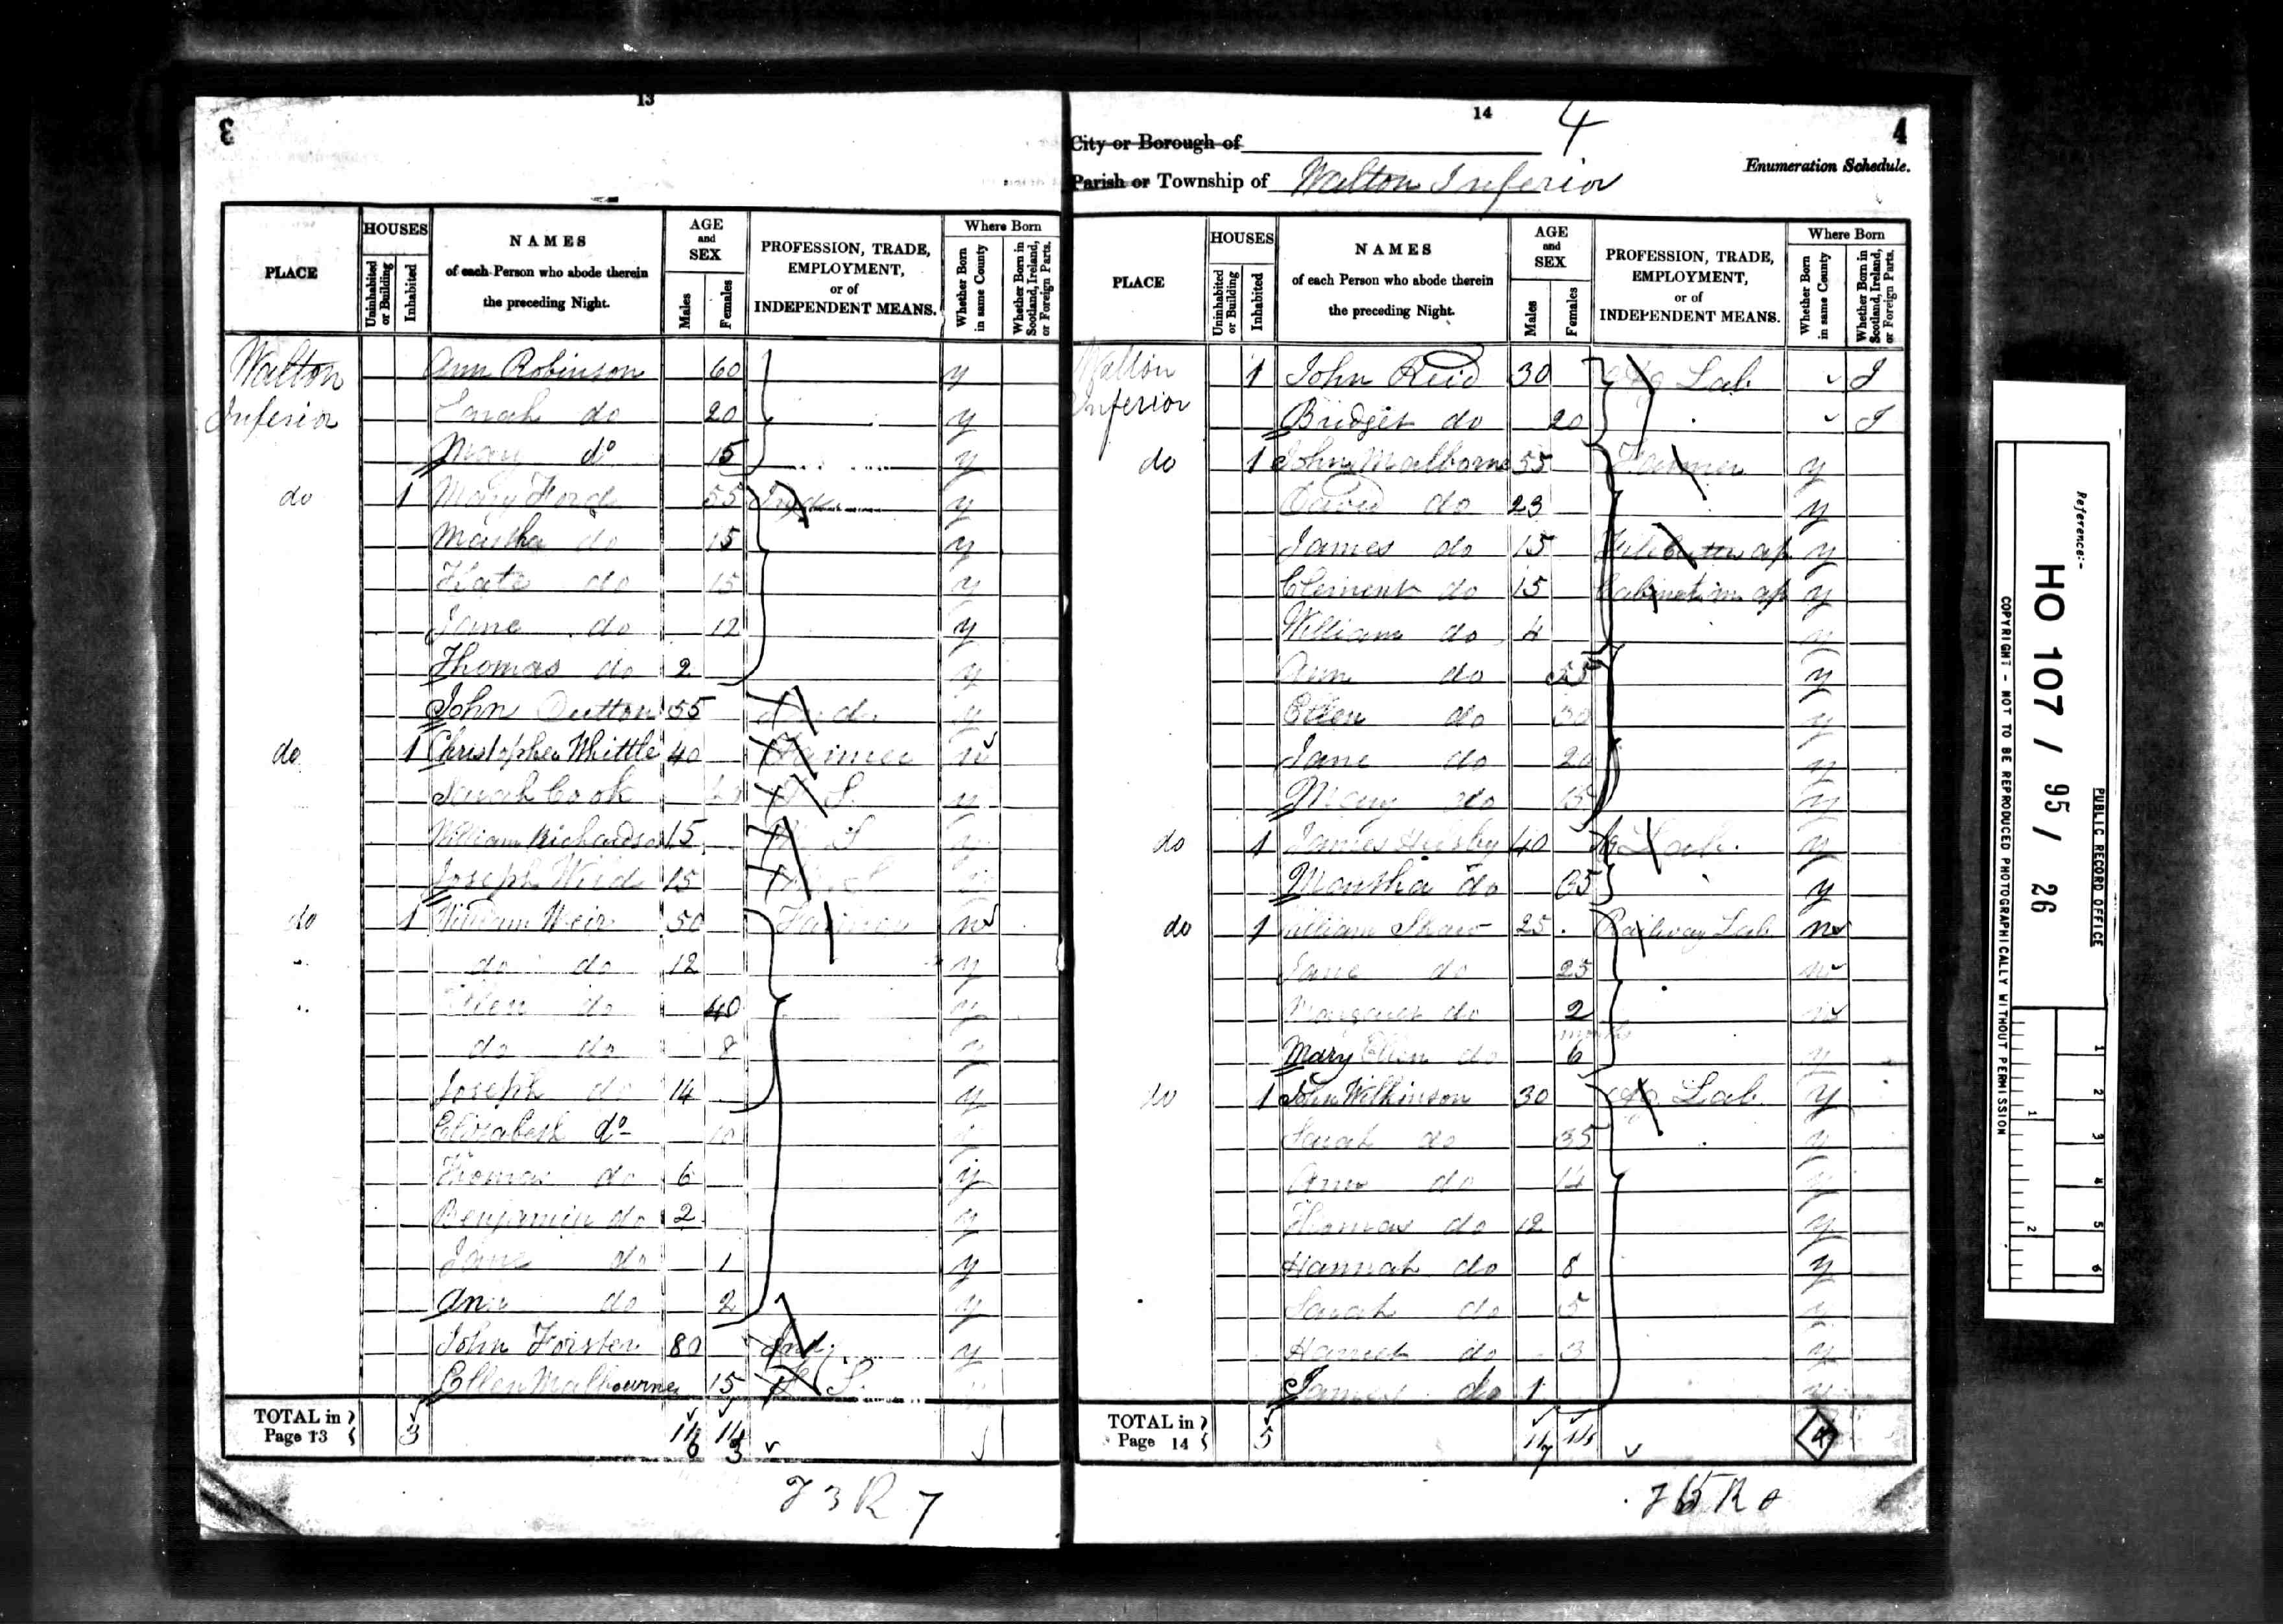 13
3
PLACE
HOUSES
Uninhabited or Building
Inhabited
NAMES
of each Person who abode therein
the preceding Night.
AGE and SEX
Males
Females
PROFESSION, TRADE,
EMPLOYMENT,
or of
INDEPENDENT MEANS.
Where Born
Whether Born in same County
Whether Born in Scotland, Ireland, or Foreign Parts.
Walton Ann Robinson 60 y
Inferior Sarah do 20 y
Mary do 15 y
do 1 Mary Ford 55 Ind y
Martha do 15 y
Kate do 15 y
Jane do 12 y
Thomas do 2 y
John Dutton 55 y
do 1 Christopher Whittle 40 Farmer n
Sarah Cook F S. y
William Richardson 15 M S
Joseph Weid 15 M S
do 1 William Weir 50 Farmer n
do do 12 y
Ellen do 40 y
do do 8 y
Joseph do 14 y
Elizabeth do 10 y
Thomas do 6 y
Benjamin do 2 y
Jane do 1 y
Ann do 2 y
John Forster 80 Ind. y
Ellen Malbourne 15 F S.
TOTAL in Page 13 3
J 3 R 7
14
4
4
City or Borough of
Enumeration Schedule.
Parish or Township of Walton Inferior
PLACE
HOUSES
Uninhabited or Building
Inhabited
NAMES
of each Person who abode therein
the preceding Night.
AGE and SEX
Males
Females
PROFESSION, TRADE,
EMPLOYMENT,
or of
INDEPENDENT MEANS.
Where Born
Whether Born in same County
Whether Born in Scotland, Ireland, or Foreign Parts.
Walton 1 John Reid 30 Ag Lab I
Inferior Bridget do 20 I
do 1 John Malborn 55 Farmer y
David do 23 y
James do 15 ap y
Clement do 15 Cabinet m ap y
William do 4 y
Ann do 55 y
Ellen do 30 y
Jane do 20 y
Mary do 15 y
do 1 James Helsby 40 Ag Lab. y
Martha do 35 y
do 1 William Shaw 25 Railway Lab n
Jane do 25 n
Margaret do 2 n
months
Mary Ellen do 6 y
do 1 John Wilkinson 30 Ag Lab. y
Sarah do 35 y
Ann do 14 y
Thomas do 12 y
Hannah do 8 y
Sarah do 5 y
Harriet do 3 y
James do 1 y
TOTAL in Page 14 5
4
Reference:-
HO 107 / 95 / 26
PUBLIC RECORD OFFICE
COPYRIGHT - NOT TO BE REPRODUCED PHOTOGRAPHICALLY WITHOUT PERMISSION
1 2 3 4 5 6
1 2